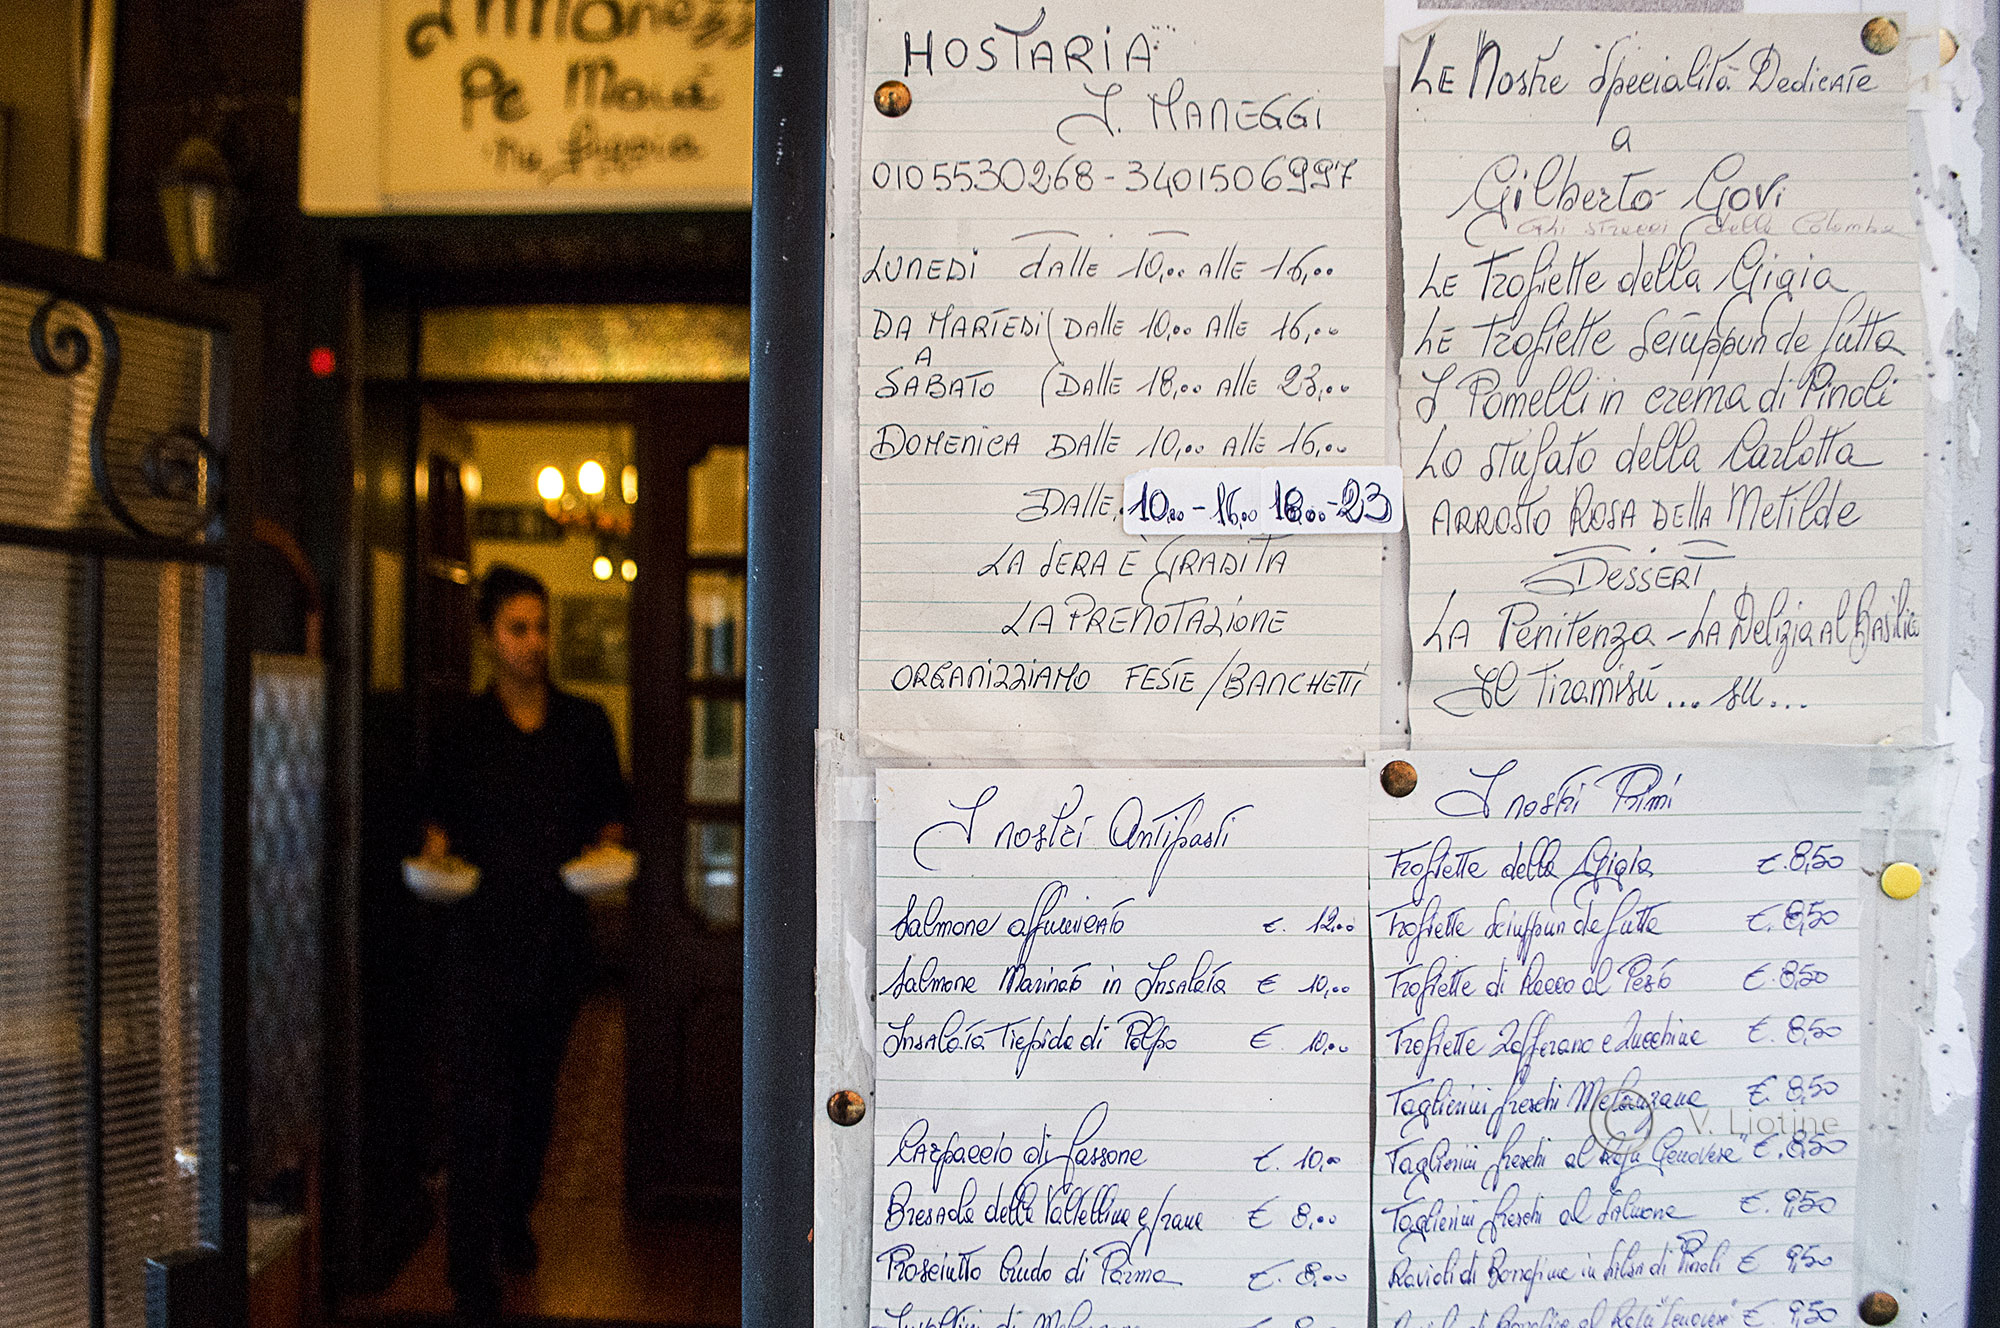 I Manezzi
Pe Maiâ
HOSTARIA
I. MANEGGI
0105530268 - 3401506997
LUNEDI dalle 10,00 alle 16,00
DA MARTEDI (DALLE 10,00 ALLE 16,00
A
SABATO (DALLE 18,00 ALLE 23,00
DOMENICA DALLE 10,00 ALLE 16,00
DALLE 10,00 - 16,00 18,00 - 23
LA SERA È GRADITA
LA PRENOTAZIONE
ORGANIZZIAMO FESTE / BANCHETTI
LE Nostre Specialità Dedicate
a
Gilberto Govi
Gli stracci della Colomba
LE Trofiette della Gigia
LE Trofiette Sciuppun de futta
I Pomelli in crema di Pinoli
Lo stufato della Carlotta
ARROSTO ROSA DELLA Metilde
DESSERT
LA Penitenza - LA Delizia AL Basilico
Il Tiramisù ... su ...
I nostri Antipasti
Salmone affumicato €. 12,00
Salmone Marinato in Insalata € 10,00
Insalata Tiepida di Polpo €. 10,00
Carpaccio di fassone €. 10,00
Bresaola della Valtellina e grana € 8,00
Prosciutto Crudo di Parma €. 8,00
I nostri Primi
Trofiette della Gigia €. 8,50
Trofiette Sciuppun de futta €. 8,50
Trofiette di Recco al Pesto €. 8,50
Trofiette Zafferano e Zucchine €. 8,50
Taglierini freschi Melanzana €. 8,50
Taglierini freschi al Ragù Genovese" €. 8,50
Taglierini freschi al Salmone €. 9,50
Ravioli di Boragine in salsa di Pinoli € 9,50
Ravioli di Boragine al Ragù "Genovese" € 9,50
© V. Liotine